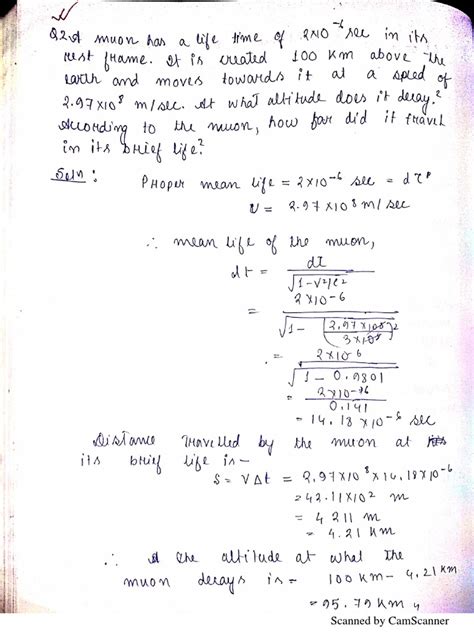 Q2. A muon has a life time of 2x10⁻⁶ sec in its
rest frame. It is created 100 km above the
earth and moves towards it at a speed of
2.97x10⁸ m/sec. At what altitude does it decay?
According to the muon, how far did it travel
in its brief life?
Soln: Proper mean life = 2x10⁻⁶ sec = dτ
v = 2.97x10⁸ m/sec
∴ mean life of the muon,
dt = dτ / √1-v²/c²
= 2x10-6 / √1 - [2.97x10⁸ / 3x10⁸]²
= 2x10-6 / √1 - 0.9801
= 2x10-6 / 0.141
= 14.18x10⁻⁶ sec
Distance travelled by the muon at
its brief life is -
S = V∆t = 2.97x10⁸x14.18x10⁻⁶
= 42.11x10² m
= 4211 m
= 4.21 km
∴ the altitude at what the
muon decays is = 100 km - 4.21 km
= 95.79 km
Scanned by CamScanner